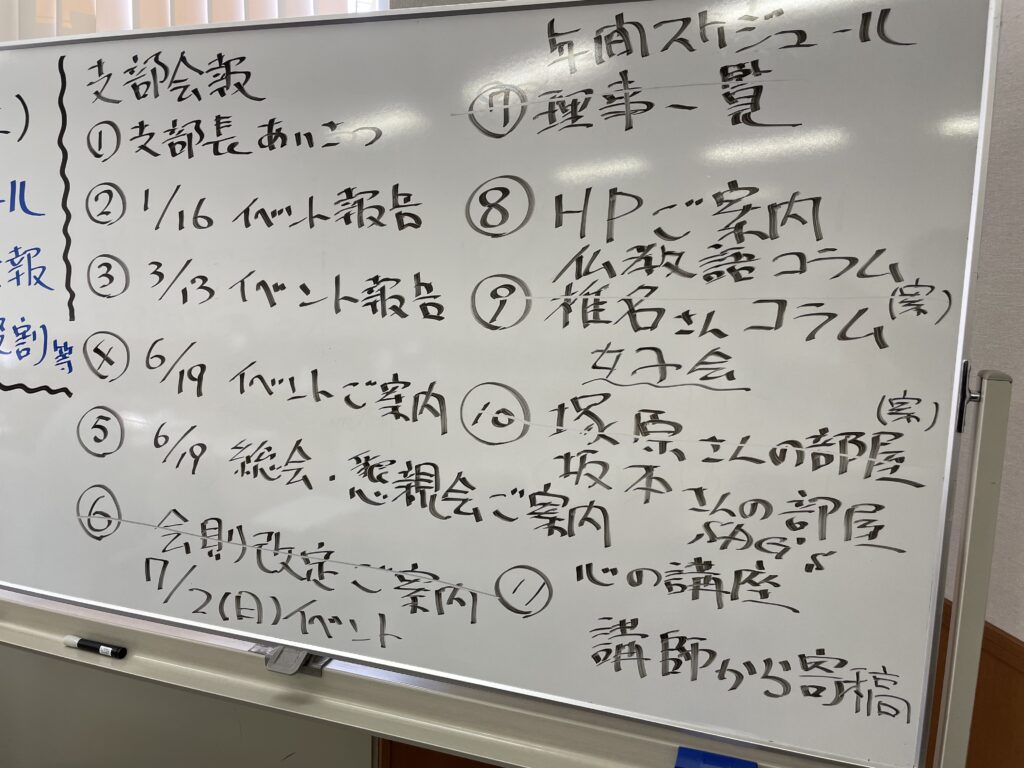 ール
報
割等
支部会報
① 支部長あいさつ
② 1/16 イベント報告
③ 3/13 イベント報告
④ 6/19 イベントご案内
⑤ 6/19 総会・懇親会ご案内
⑥ 会則改定ご案内
7/2(日)イベント
年間スケジュール
⑦ 理事一覧
⑧ HPご案内
仏教語コラム
⑨ 椎名さんコラム(案)
女子会
⑩ 塚原さんの部屋(案)
坂本さんの部屋
⑪ 心の講座
講師から寄稿